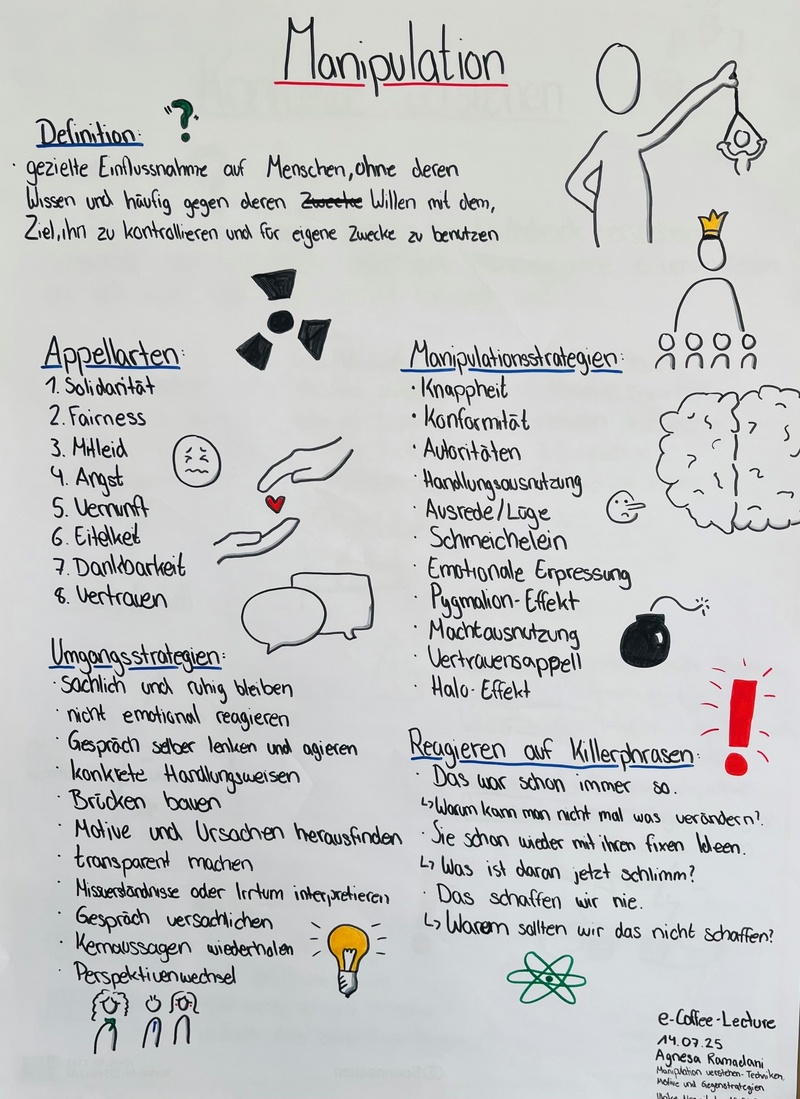 Manipulation
"?"
Definition:
· gezielte Einflussnahme auf Menschen, ohne deren
Wissen und häufig gegen deren Zwecke Willen mit dem,
Ziel, ihn zu kontrollieren und für eigene Zwecke zu benutzen
Appellarten:
1. Solidarität
2. Fairness
3. Mitleid
4. Angst
5. Vernunft
6. Eitelkeit
7. Dankbarkeit
8. Vertrauen
Umgangsstrategien:
· sachlich und ruhig bleiben
· nicht emotional reagieren
· Gespräch selber lenken und agieren
· konkrete Handlungsweisen
· Brücken bauen
· Motive und Ursachen herausfinden
· transparent machen
· Missverständnisse oder Irrtum interpretieren
· Gespräch versachlichen
· Kernaussagen wiederholen
· Perspektivenwechsel
Manipulationsstrategien:
· Knappheit
· Konformität
· Autoritäten
· Handlungsausnutzung
· Ausrede/Lüge
· Schmeichelein
· Emotionale Erpressung
· Pygmalion-Effekt
· Machtausnutzung
· Vertrauensappell
· Halo-Effekt
Reagieren auf Killerphrasen:
· Das war schon immer so.
↳ Warum kann man nicht mal was verändern?
· Sie schon wieder mit ihren fixen Ideen.
↳ Was ist daran jetzt schlimm?
· Das schaffen wir nie.
↳ Warum sollten wir das nicht schaffen?
e-Coffee-Lecture
14.07.25
Agnesa Ramadani
Manipulation verstehen-Techniken,
Motive und Gegenstrategien